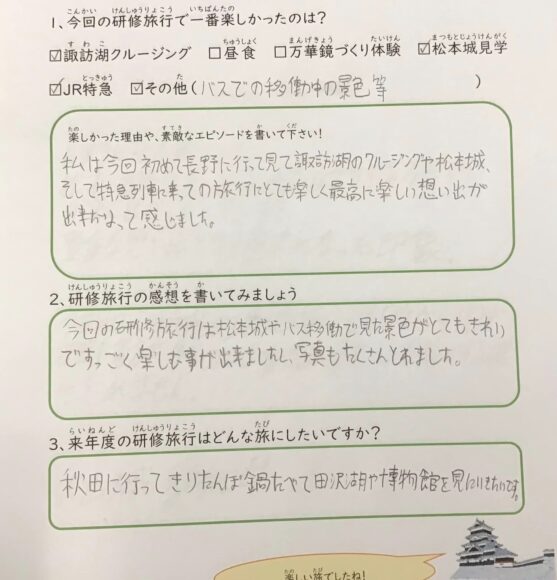 1、今回の研修旅行で一番楽しかったのは?
☑諏訪湖クルージング □昼食 □万華鏡づくり体験 ☑松本城見学
☑JR特急 ☑その他(バスでの移働中の景色等 )
楽しかった理由や、素敵なエピソードを書いて下さい!
私は今回初めて長野に行って見て諏訪湖のクルージングや松本城、
そして特急列車に乗っての旅行にとても楽しく最高に楽しい想い出が
出来たなって感じました。
2、研修旅行の感想を書いてみましょう
今回の研修旅行は松本城やバス移働で見た景色がとてもきれい
ですっごく楽しむ事が出来ましたし、写真もたくさんとれました。
3、来年度の研修旅行はどんな旅にしたいですか?
秋田に行ってきりたんぽ鍋たべて田沢湖や博物館を見に行きたいです。
楽しい旅でしたね!